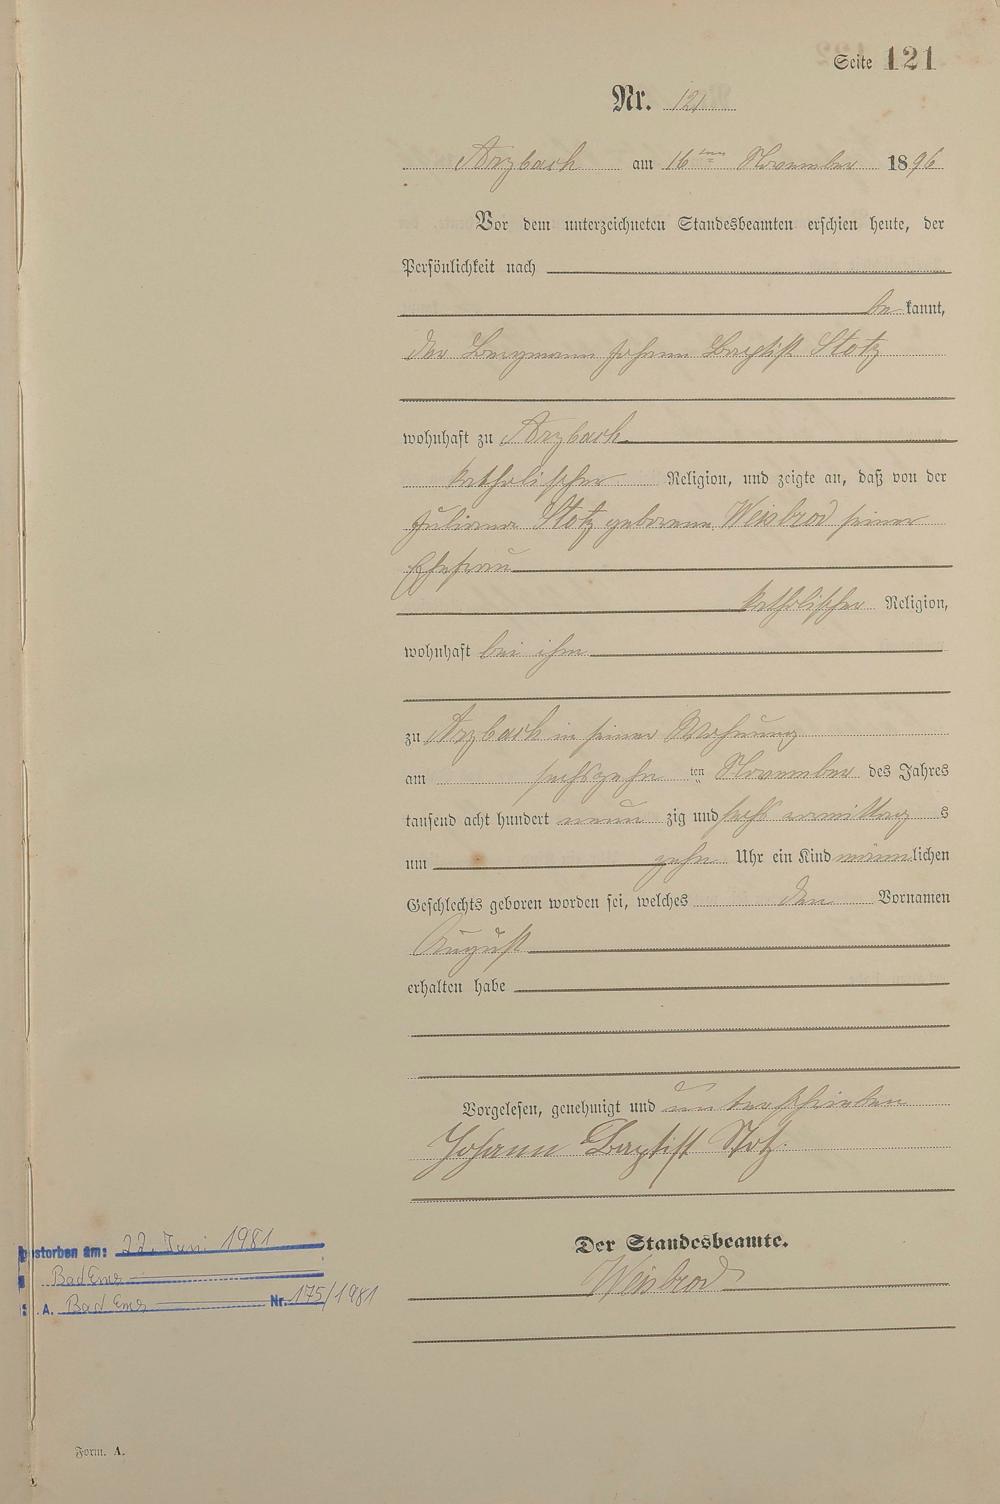 Seite 121
Nr. 121
Arzbach am 16ten November 1896
Vor dem unterzeichneten Standesbeamten erschien heute, der
Persönlichkeit nach
be kannt,
der Bergmann Johann Baptist Stotz
wohnhaft zu Arzbach
katholischer Religion, und zeigte an, daß von der
Juliana Stotz geborene Weisbrod seiner
Ehefrau
katholischer Religion,
wohnhaft bei ihm
zu Arzbach in seiner Wohnung
am sechszehn ten November des Jahres
tausend acht hundert neun zig und sechs vormittag s
um zehn Uhr ein Kind männlichen
Geschlechts geboren worden sei, welches den Vornamen
August
erhalten habe
Vorgelesen, genehmigt und unterschrieben
Johann Baptist Stotz.
Der Standesbeamte.
Weisbrod
gestorben am: 22. Juni 1981
Bad Ems
St. A. Bad Ems Nr. 175/1981
Form. A.